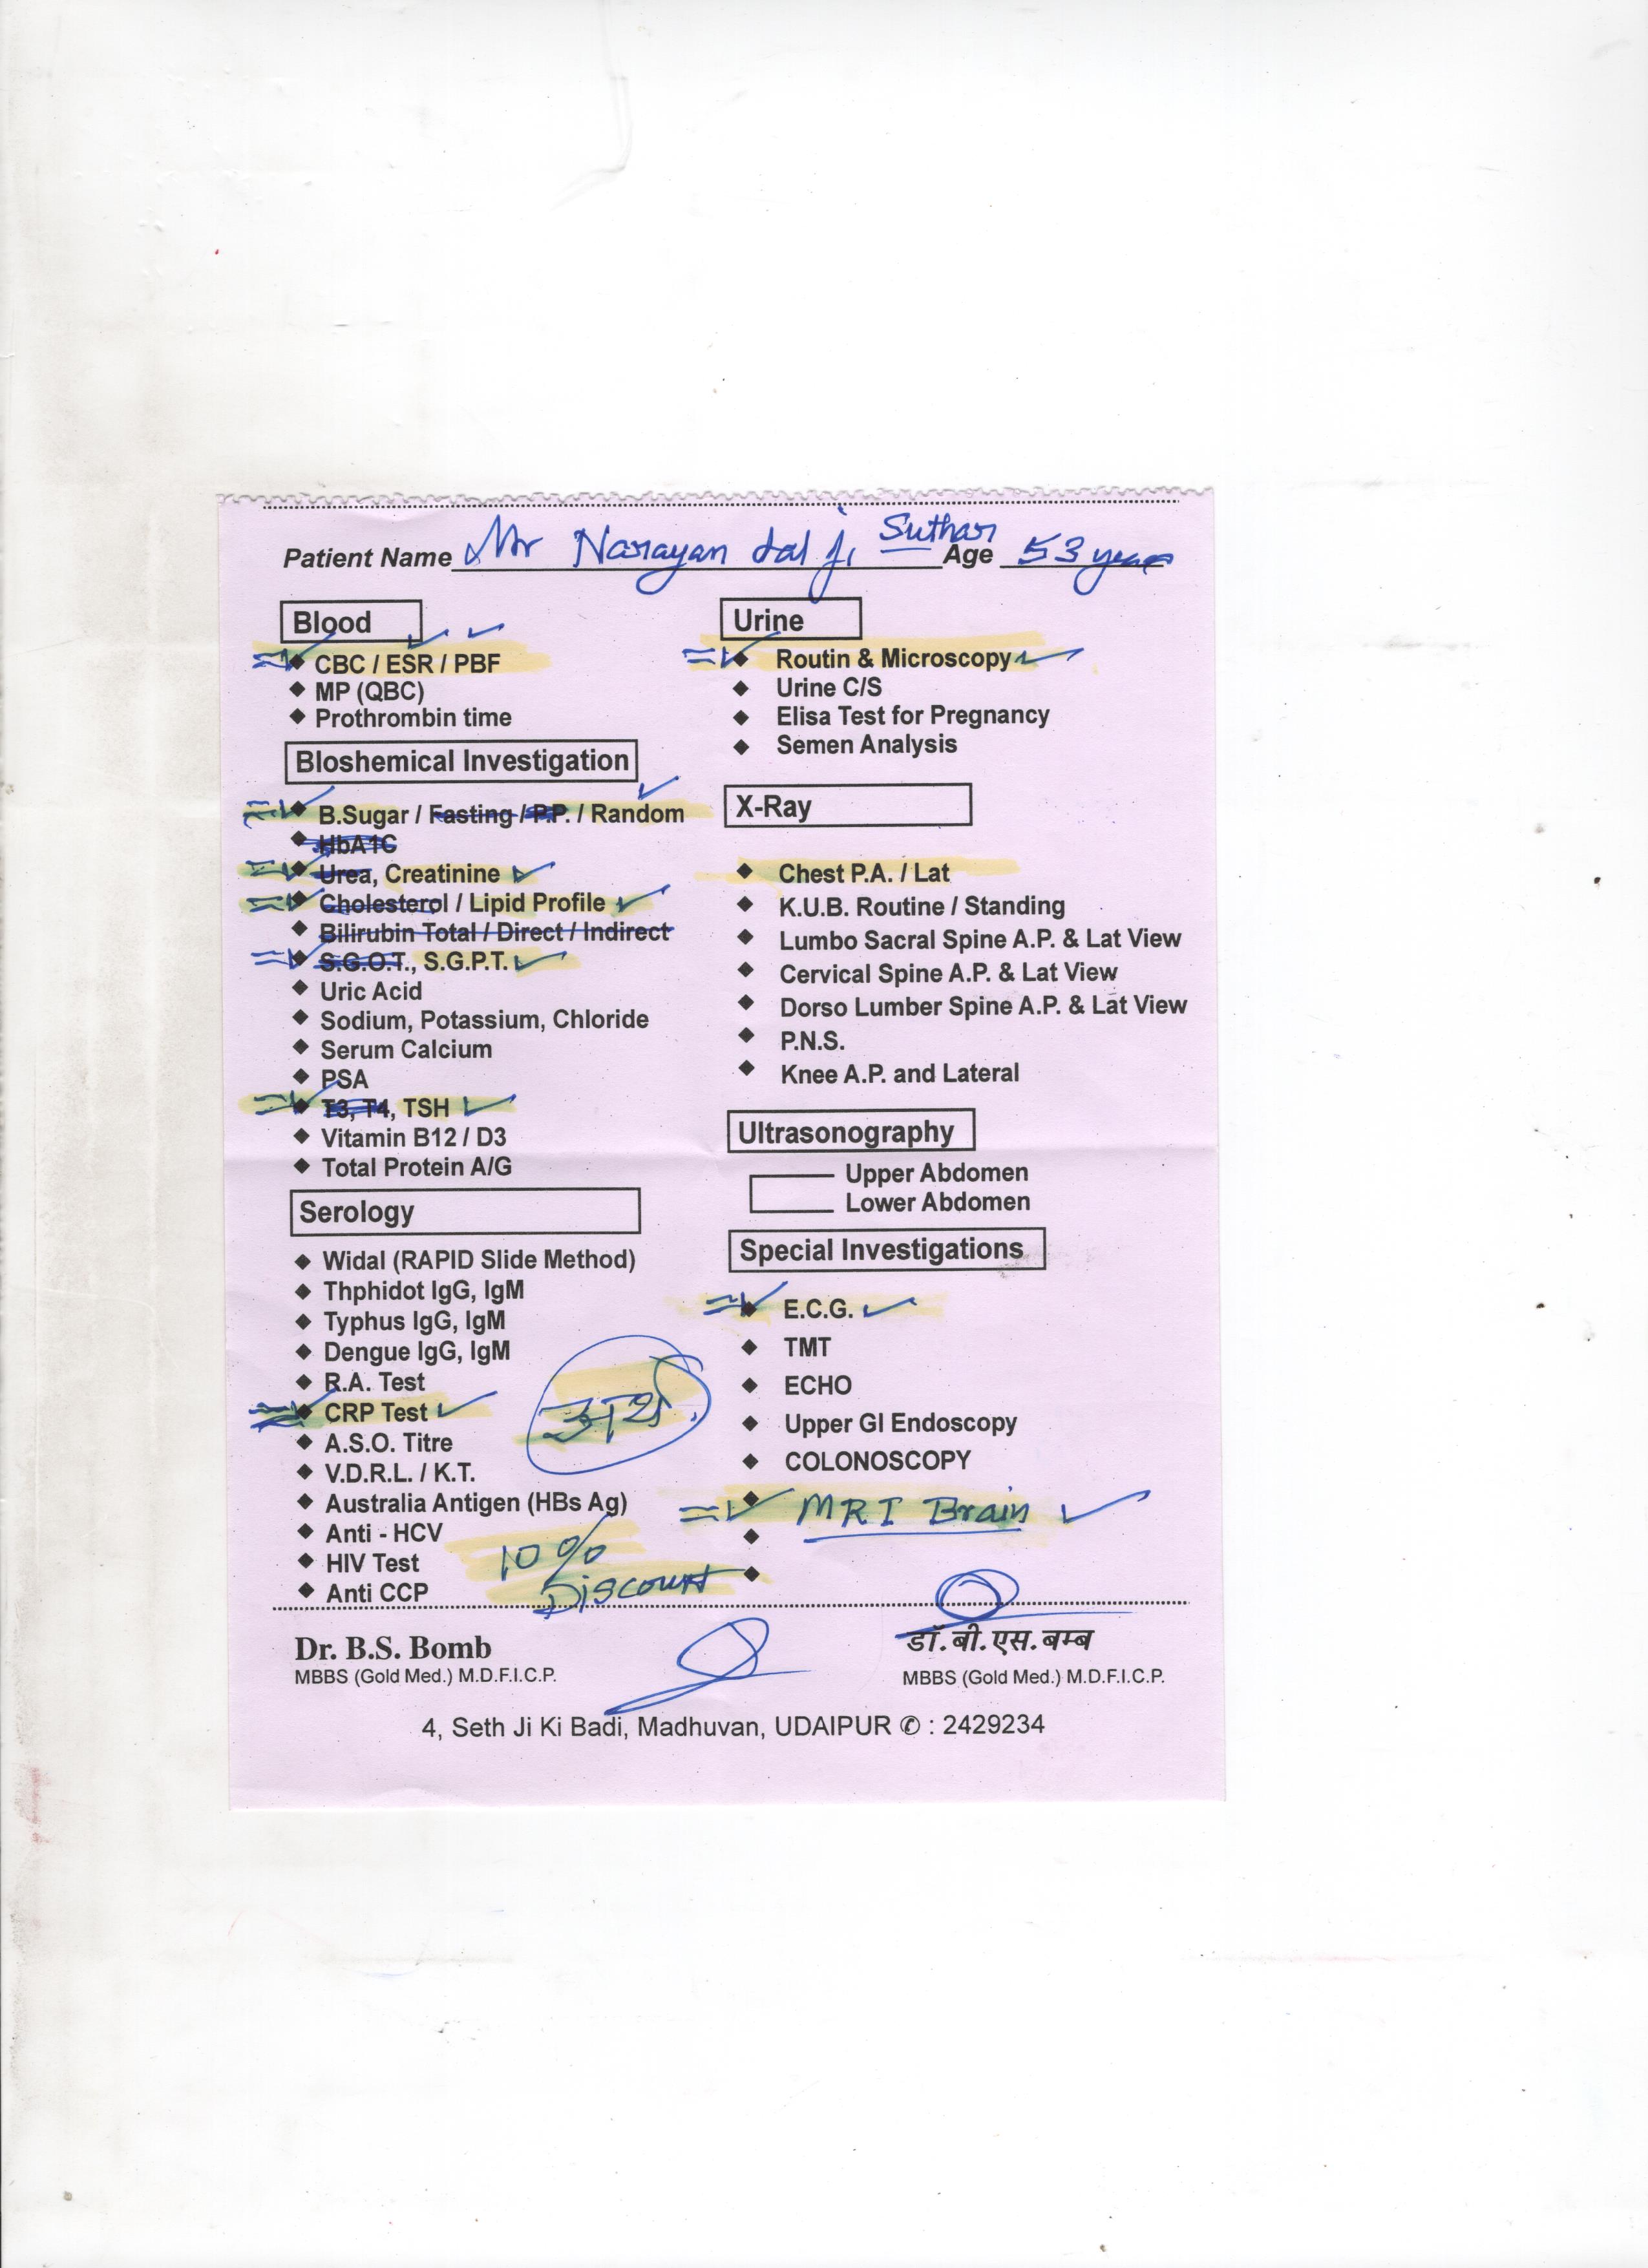 Patient Name Mr Narayan Lal ji Suthar Age 53 years
Blood
CBC / ESR / PBF
MP (QBC)
Prothrombin time
Bloshemical Investigation
B.Sugar / Fasting / P.P. / Random
HbA1C
Urea, Creatinine
Cholesterol / Lipid Profile
Bilirubin Total / Direct / Indirect
S.G.O.T., S.G.P.T.
Uric Acid
Sodium, Potassium, Chloride
Serum Calcium
PSA
T3, T4, TSH
Vitamin B12 / D3
Total Protein A/G
Serology
Widal (RAPID Slide Method)
Thphidot IgG, IgM
Typhus IgG, IgM
Dengue IgG, IgM
R.A. Test
CRP Test
A.S.O. Titre
V.D.R.L. / K.T.
Australia Antigen (HBs Ag)
Anti - HCV
HIV Test
Anti CCP
अर्थ
10%
Discount
Urine
Routin & Microscopy
Urine C/S
Elisa Test for Pregnancy
Semen Analysis
X-Ray
Chest P.A. / Lat
K.U.B. Routine / Standing
Lumbo Sacral Spine A.P. & Lat View
Cervical Spine A.P. & Lat View
Dorso Lumber Spine A.P. & Lat View
P.N.S.
Knee A.P. and Lateral
Ultrasonography
Upper Abdomen
Lower Abdomen
Special Investigations
E.C.G.
TMT
ECHO
Upper GI Endoscopy
COLONOSCOPY
MRI Brain
Dr. B.S. Bomb
MBBS (Gold Med.) M.D.F.I.C.P.
डॉ. बी. एस. बम्ब
MBBS (Gold Med.) M.D.F.I.C.P.
4, Seth Ji Ki Badi, Madhuvan, UDAIPUR ✆ : 2429234